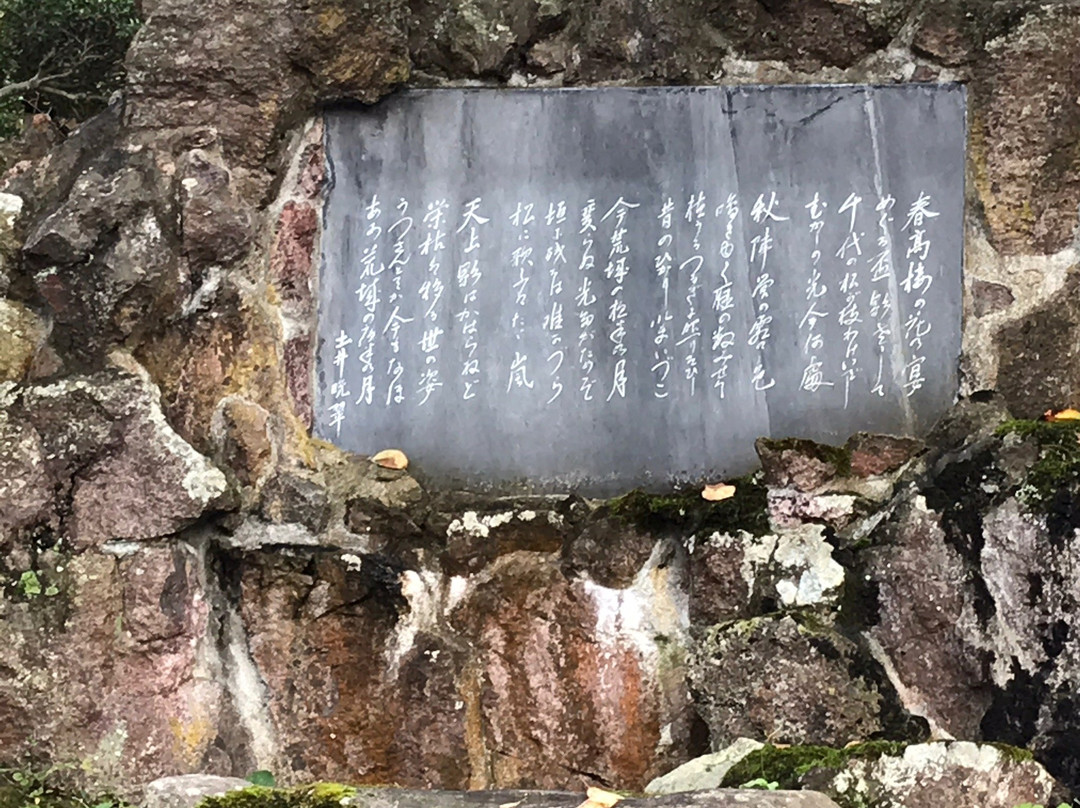 春高楼の花の宴
めぐる盃影さして
千代の松が枝わけいでし
むかしの光今何處
秋陣営の霜の色
鳴き行く雁の数見せて
植うるつるぎに照りそひし
昔の光り今いづこ
今荒城の夜半の月
変らぬ光たがためぞ
垣に残るは唯かづら
松に歌ふはたゞ嵐
天上影はかはらねど
栄枯は移る世の姿
うつさんとてか今もなほ
あゝ荒城の夜半の月
土井晩翠